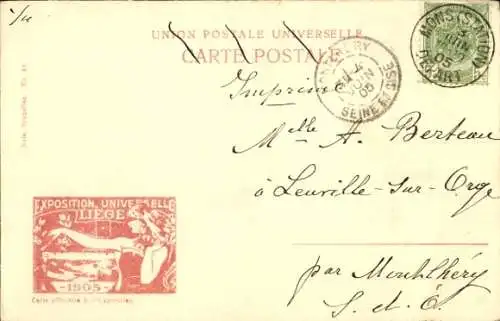 UNION POSTALE UNIVERSELLE
CARTE POSTALE
MONS (STATION)
JUIN
05
DÉPART
JUIN
05
SEINE ET OISE
Imprimé
Melle A. Berteau
à Leuville-sur-Orge
par Montlhéry
S. et O.
EXPOSITION UNIVERSELLE
LIÈGE
1905